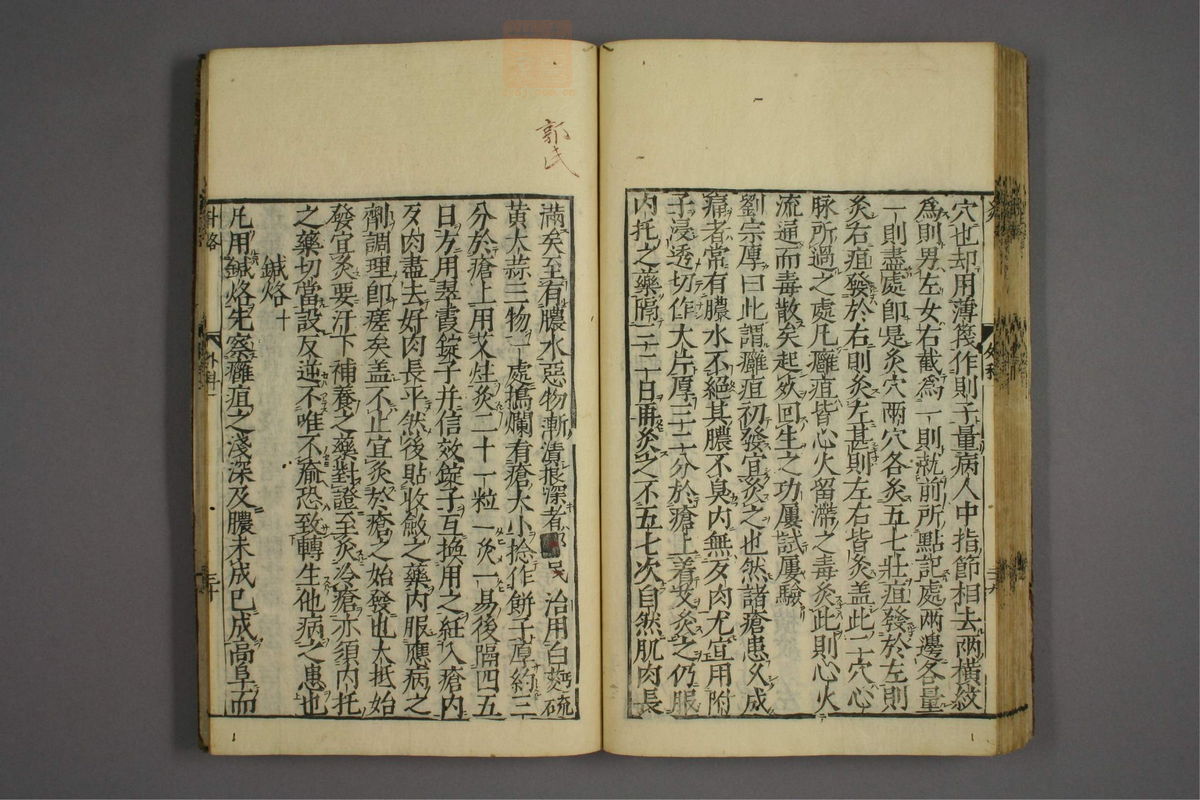 穴也却用薄篾作則子量病人中指節相去兩橫紋
為則男左女右截為一則於前所點記處兩邊各量
一則盡處即是灸穴兩穴各灸五七壯疽發於左則
灸右疽發於右則灸左甚則左右皆灸盖此二穴心
脉所過之處凡癰疽皆心火留滯之毒灸此則心火
流通而毒散矣起效回生之功屢試屢驗
劉宗厚曰此謂癰疽初發宜灸之也然諸瘡患久成
漏者常有膿水不絕其膿不臭內無歹肉尤宜用附
子浸透切作大片厚三二分於瘡上着艾灸之仍服
內托之藥隔三二日再灸之不五七次自然肌肉長
郭氏
滿矣至有膿水惡物漸漬根深者郭氏治用白麪硫
黃大蒜三物一處搗爛看瘡大小捻作餅子厚約三
分於瘡上用艾炷灸二十一粒一灸一易後隔四五
日方用翠霞錠子并信效錠子互換用之紝入瘡內
歹肉盡去好肉長平然後貼收斂之藥內服應病之
劑調理即瘥矣盖不止宜灸於瘡之始發也大抵始
發宜灸要汗下補養之藥對證至灸冷瘡亦須內托
之藥切當設反逆不唯不瘉恐致轉生他病之患也
鍼烙十
凡用鍼烙先察癰疽之淺深及膿未成已成高阜而